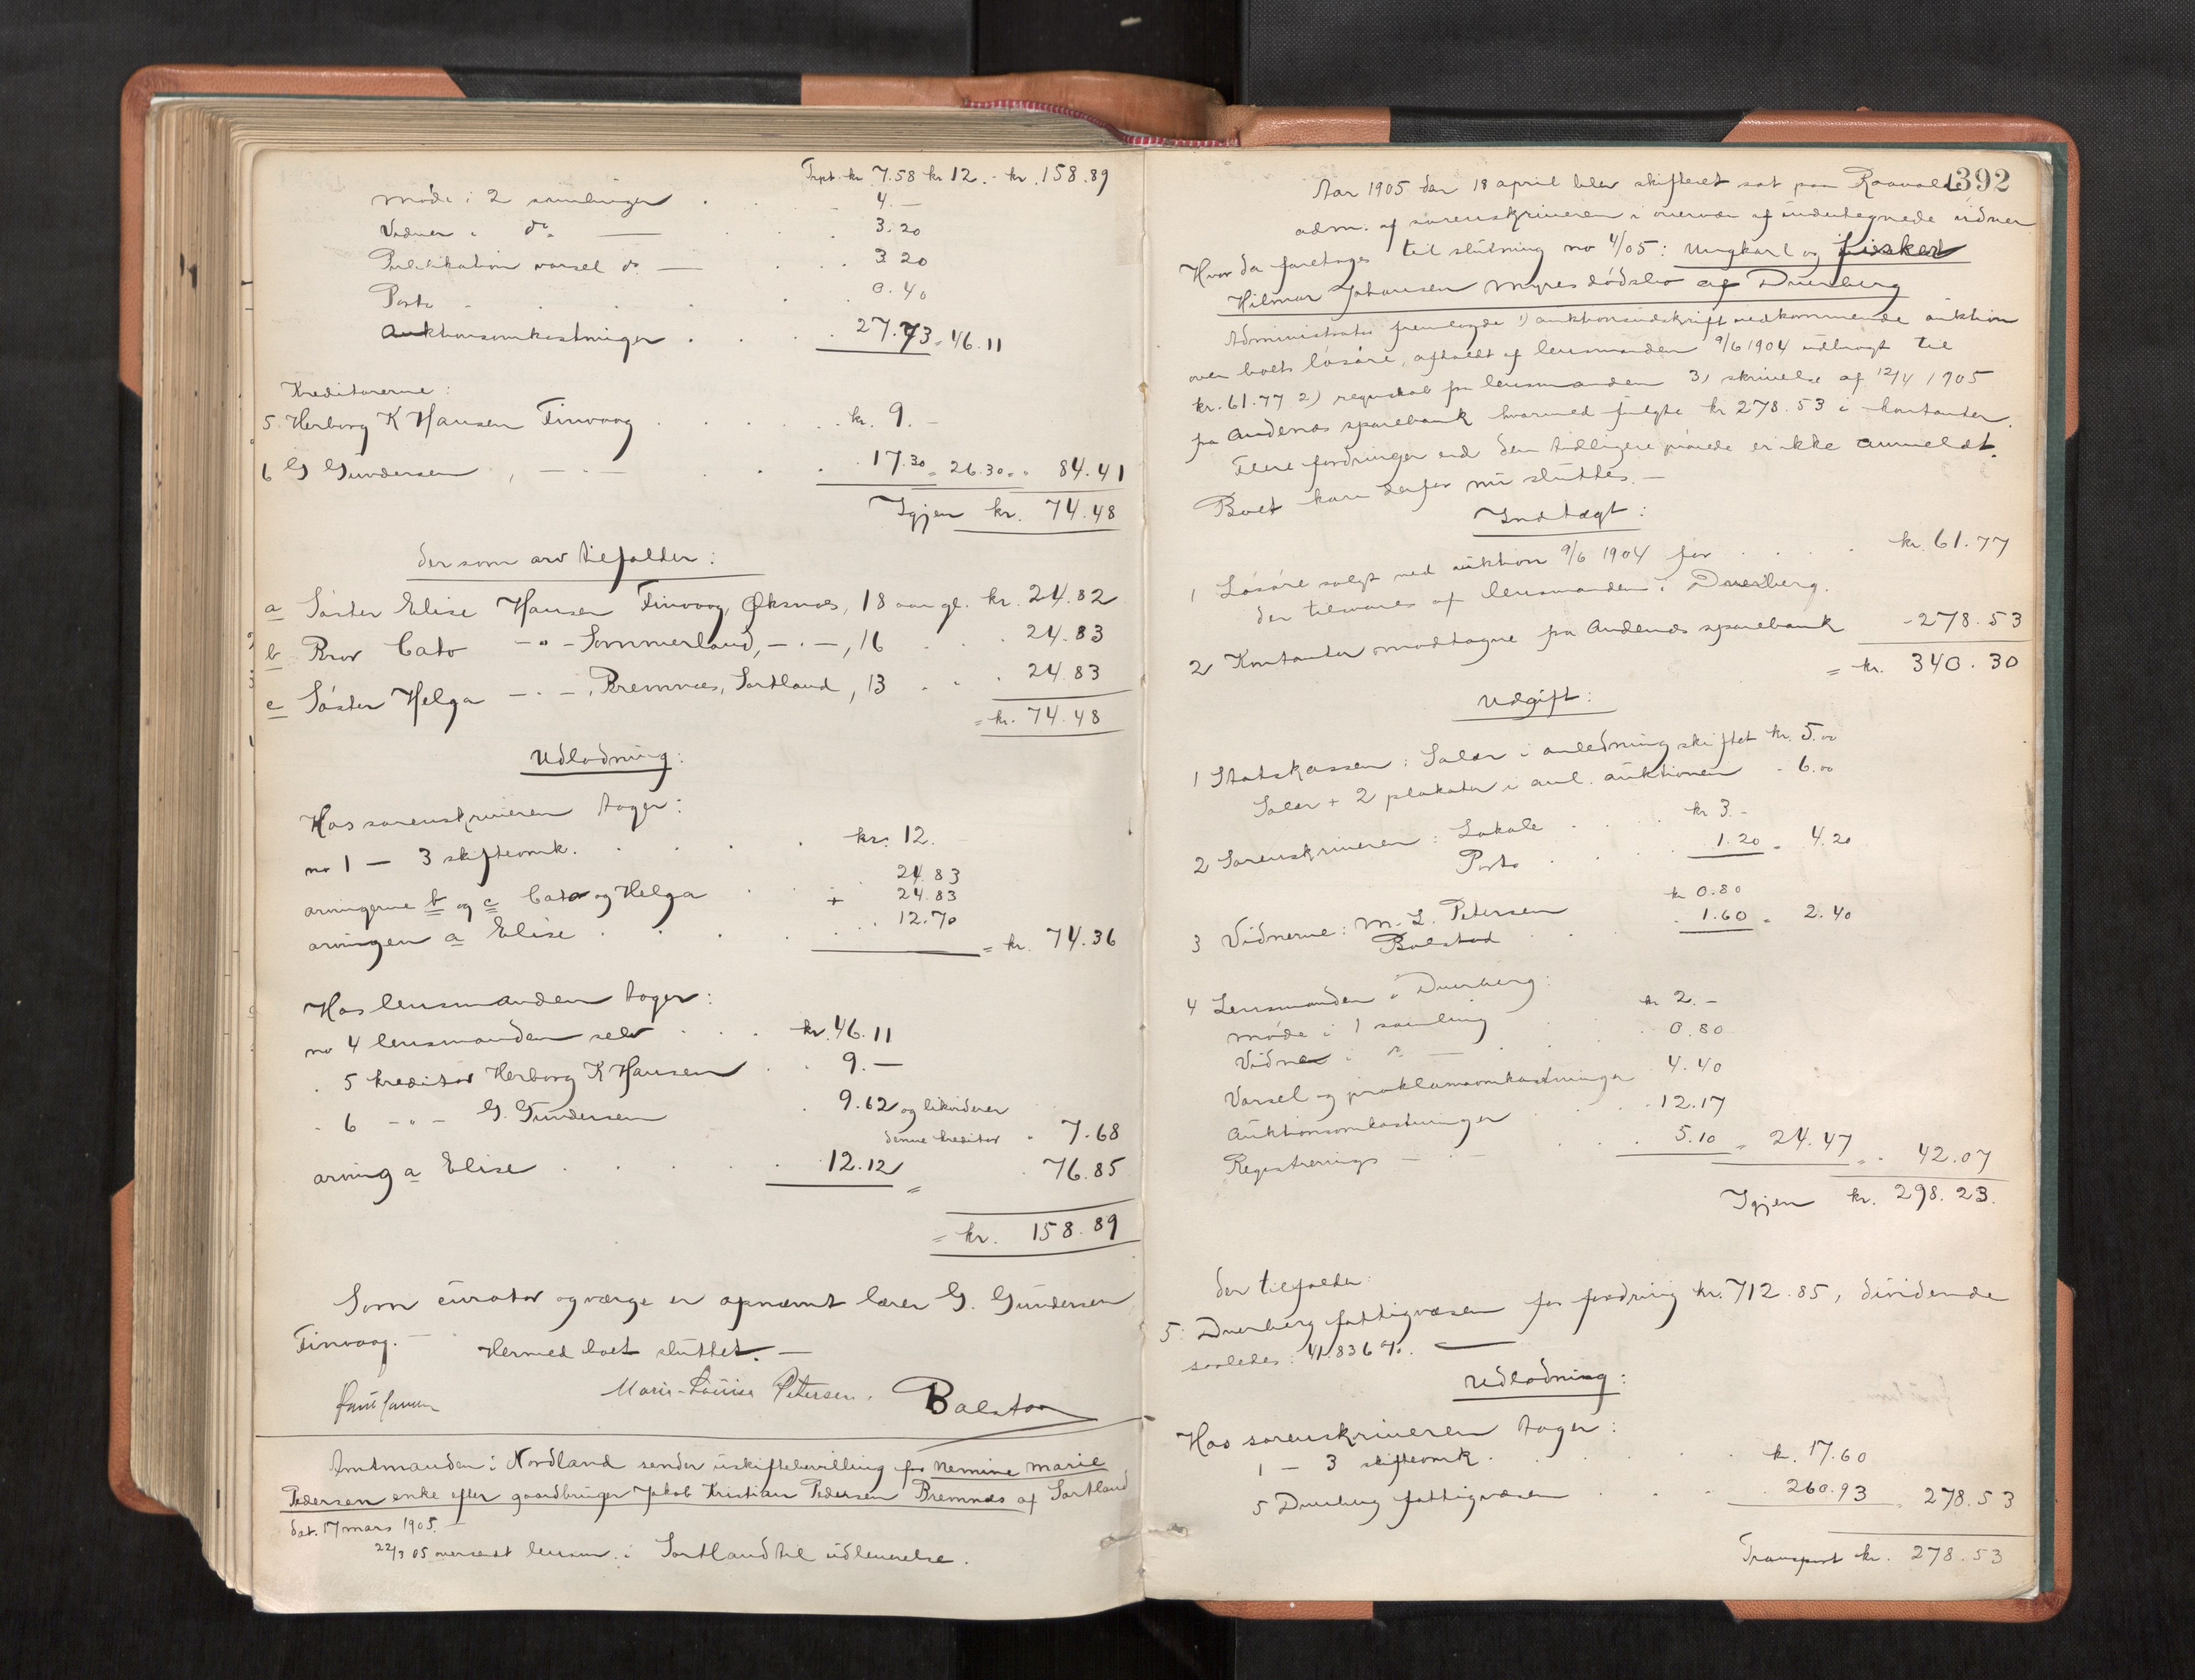 Trpt. kr. 7.58 kr 12.- kr. 158.89
møde i 2 samlinger . . . 4.—
Vidner i do — . . . 3.20
Publikation varsel do — . . 3 20
Porto . . . . . 0.40
Auktionsomkostninger . . . 27.73 = 46.11
Kreditorerne:
5 Herborg K Hansen Finvaag . . . . . kr. 9.—
6 G Gundersen, — " — . . 17.30 = 26.30 = " 84.41
Igjen kr. 74.48
der som arv tilfalder:
a Søster Elise Hansen Finvaag, Øksnæs, 18 aar gl. kr. 24.82
b Bror Cato — " — Sommerland, — " —, 16 . . 24.83
c Søster Helga — " — Bremnæs, Sortland, 13 . . . 24.83
= kr. 74.48
Udlodning:
Hos sorenskriveren tager:
no 1 — 3 skifteomk. . . . . kr. 12.
24.83
arvingerne b og c Cato og Helga . + 24.83
arvingen a Elise . . . . . 12.70 = kr. 74.36
Hos lensmanden tager:
no 4 lensmanden selv . . . kr. 46.11
" 5 kreditor Herborg K Hansen . . 9.—
" 6 — " — G. Gundersen . 9.62 og likviderer
denne kreditor " 7.68
arving a Elise . . . . . 12.12 = 76.85
= kr. 158.89
Som curator og værge er opnævnt lærer G. Gundersen
Finvaag. — Hermed boet sluttet. —
Marie-Louise Petersen. Balstad
Amtmanden i Nordland sender uskiftebevilling for Nemine Marie
Pedersen enke efter gaardbruger Jakob Kristian Pedersen Bremnæs af Sortland
dat. 17 mars 1905. —
22/3 05 oversendt lensm. i Sortland til udleverelse.
392
Aar 1905 den 18 april blev skifteret sat paa
adm. af sorenskriveren i overvær af undertegnede vidner
Hvor da foretoges til slutning no 4/05: Ungkarl og fisker
Hilmar Johansen Myres dødsbo af Dverberg
Administrator fremlagde 1) auktionsudskrift vedkommende auktion
over boets løsøre, afholdt af lensmanden 9/6 1904 udbragt til
kr. 61.77 2) regnskab fra lensmanden 3) skrivelse af 12/4 1905
fra Andenæs sparebank hvormed fulgte kr 278.53 i kontanter.
Flere fordringer end den tidligere prøvede er ikke anmeldt.
Boet kan derfor nu sluttes. —
Indtægt:
1 Løsøre solgt ved auktion 9/6 1904 for . . . . kr. 61.77
der tilsvares af lensmanden i Dverberg.
2 Kontanter modtagne fra Andenæs sparebank - 278.53
= kr. 340.30
Udgift:
1 Statskassen: Salær i anledning skiftet kr. 5.00
Salær + 2 plakater i anl. auktionen - 6.00
2 Sorenskriveren: Lokale . . . kr 3.-
Porto . . . . 1.20 = 4.20
3 Vidnerne: M. L. Petersen kr 0.80
Balstad . . . 1.60 = 2.40
4 Lensmanden i Dverberg:
møde i 1 samling kr 2.—
Vidner i do — . . . 0.80
Varsel og proklamaomkostninger 4.40
Auktionsomkostninger . . . . 12.17
Registrerings — " — . . . 5.10 = 24.47 = " 42.07
Igjen kr. 298.23.
der tilfalder:
5: Dverberg fattigvæsen for fordring kr. 712.85, dividende
saaledes: 41.836 %. —
Udlodning:
Hos sorenskriveren tager:
1 — 3 skifteomk. . . . . kr. 17.60
5 Dverberg fattigvæsen . . . . 260.93 " 278.53
Transport kr. 278.53